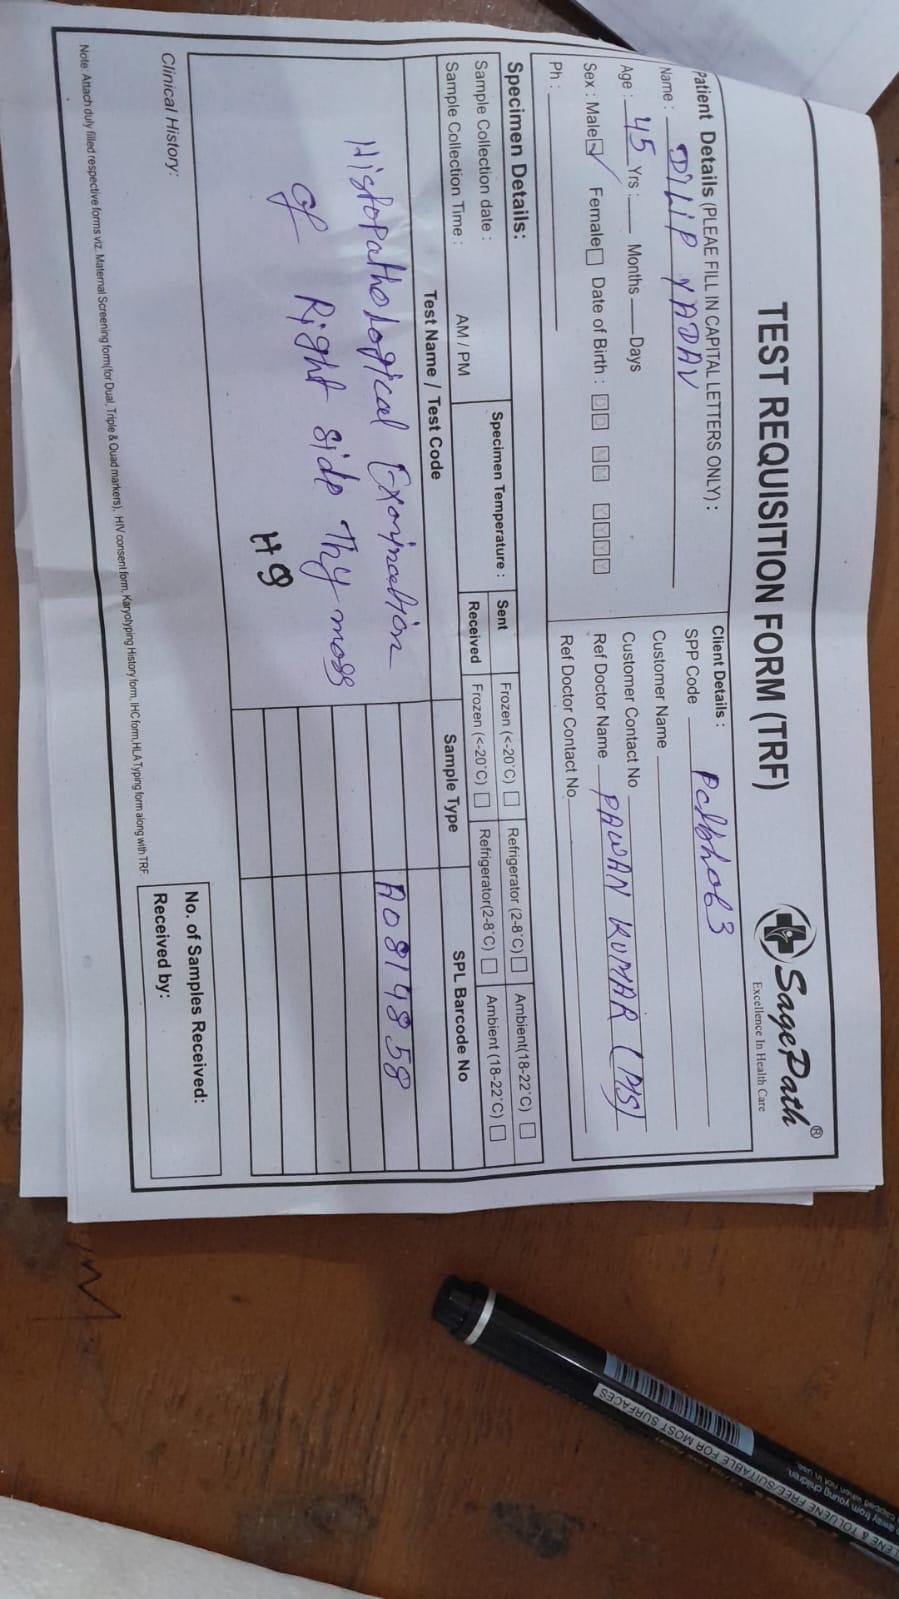 TEST REQUISITION FORM (TRF)
SagePath®
Excellence In Health Care
Patient Details (PLEAE FILL IN CAPITAL LETTERS ONLY) :
Name : DILIP YADAV
Age : 45 Yrs : Months Days
Sex : Male Female Date of Birth : D D M M Y Y Y Y
Ph :
Client Details :
SPP Code
Customer Name
Customer Contact No
Ref Doctor Name PAWAN KUMAR (MS)
Ref Doctor Contact No.
Specimen Details:
Sample Collection date :
Sample Collection Time : AM / PM
Specimen Temperature :
Sent Frozen (<-20°C) Refrigerator (2-8°C) Ambient(18-22°C)
Received Frozen (<-20°C) Refrigerator(2-8°C) Ambient (18-22°C)
Test Name / Test Code Sample Type SPL Barcode No
Histopathological Examination A0814858
of Right side Thy mass
H9
Clinical History:
No. of Samples Received:
Received by:
Note: Attach duly filled respective forms viz. Maternal Screening form(for Dual, Triple & Quad markers), HIV consent form, Karyotyping History form, IHC form,HLA Typing form along with TRF.
SUITABLE FOR MOST SURFACES